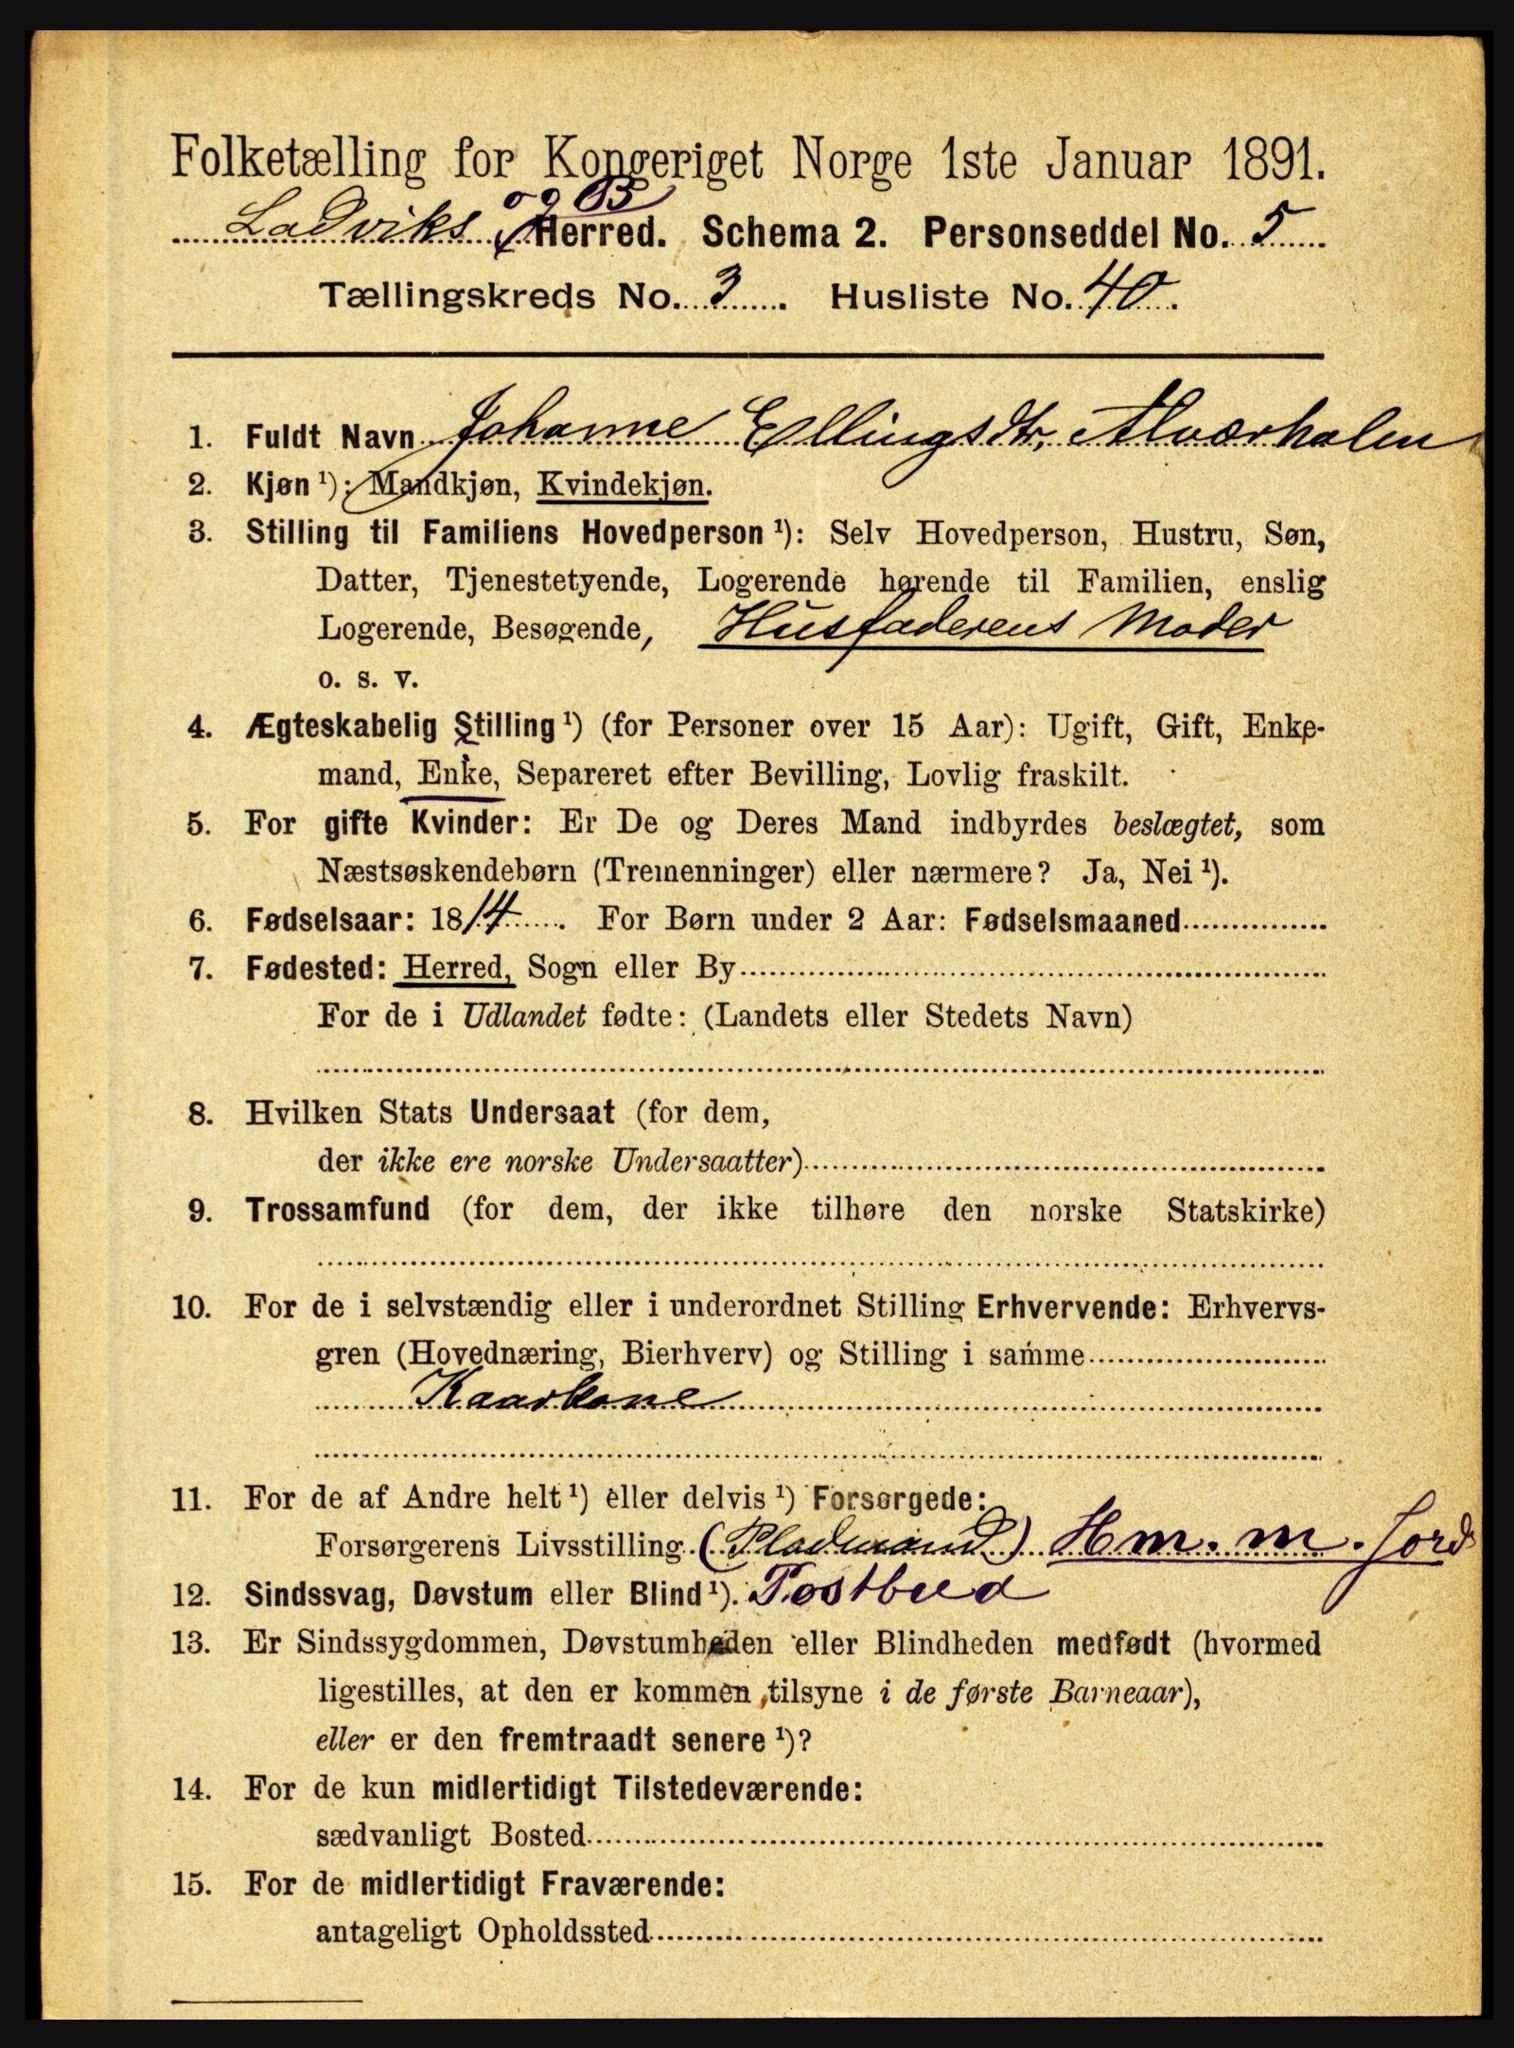 Folketælling for Kongeriget Norge 1ste Januar 1891.
og B
Ladviks Herred. Schema 2. Personseddel No. 5
Tællingskreds No. 3. Husliste No. 40.
1. Fuldt Navn Johanne Ellingsdtr. Alværholen
2. Kjøn ¹): Mandkjøn, Kvindekjøn.
3. Stilling til Familiens Hovedperson ¹): Selv Hovedperson, Hustru, Søn,
Datter, Tjenestetyende, Logerende hørende til Familien, enslig
Logerende, Besøgende, Husfaderens Moder
o. s. v.
4. Ægteskabelig Stilling ¹) (for Personer over 15 Aar): Ugift, Gift, Enke-
mand, Enke, Separeret efter Bevilling, Lovlig fraskilt.
5. For gifte Kvinder: Er De og Deres Mand indbyrdes beslægtet, som
Næstsøskendebørn (Tremenninger) eller nærmere? Ja, Nei ¹).
6. Fødselsaar: 1814. For Børn under 2 Aar: Fødselsmaaned
7. Fødested: Herred, Sogn eller By
For de i Udlandet fødte: (Landets eller Stedets Navn)
8. Hvilken Stats Undersaat (for dem,
der ikke ere norske Undersaatter)
9. Trossamfund (for dem, der ikke tilhøre den norske Statskirke)
10. For de i selvstændig eller i underordnet Stilling Erhvervende: Erhvervs-
gren (Hovednæring, Bierhverv) og Stilling i samme
Kaarkone
11. For de af Andre helt ¹) eller delvis ¹) Forsørgede:
Forsørgerens Livsstilling (Pladsmand) Hm. m. Jord
12. Sindssvag, Døvstum eller Blind ¹). Postbud
13. Er Sindssygdommen, Døvstumheden eller Blindheden medfødt (hvormed
ligestilles, at den er kommen tilsyne i de første Barneaar),
eller er den fremtraadt senere ¹)?
14. For de kun midlertidigt Tilstedeværende:
sædvanligt Bosted
15. For de midlertidigt Fraværende:
antageligt Opholdssted